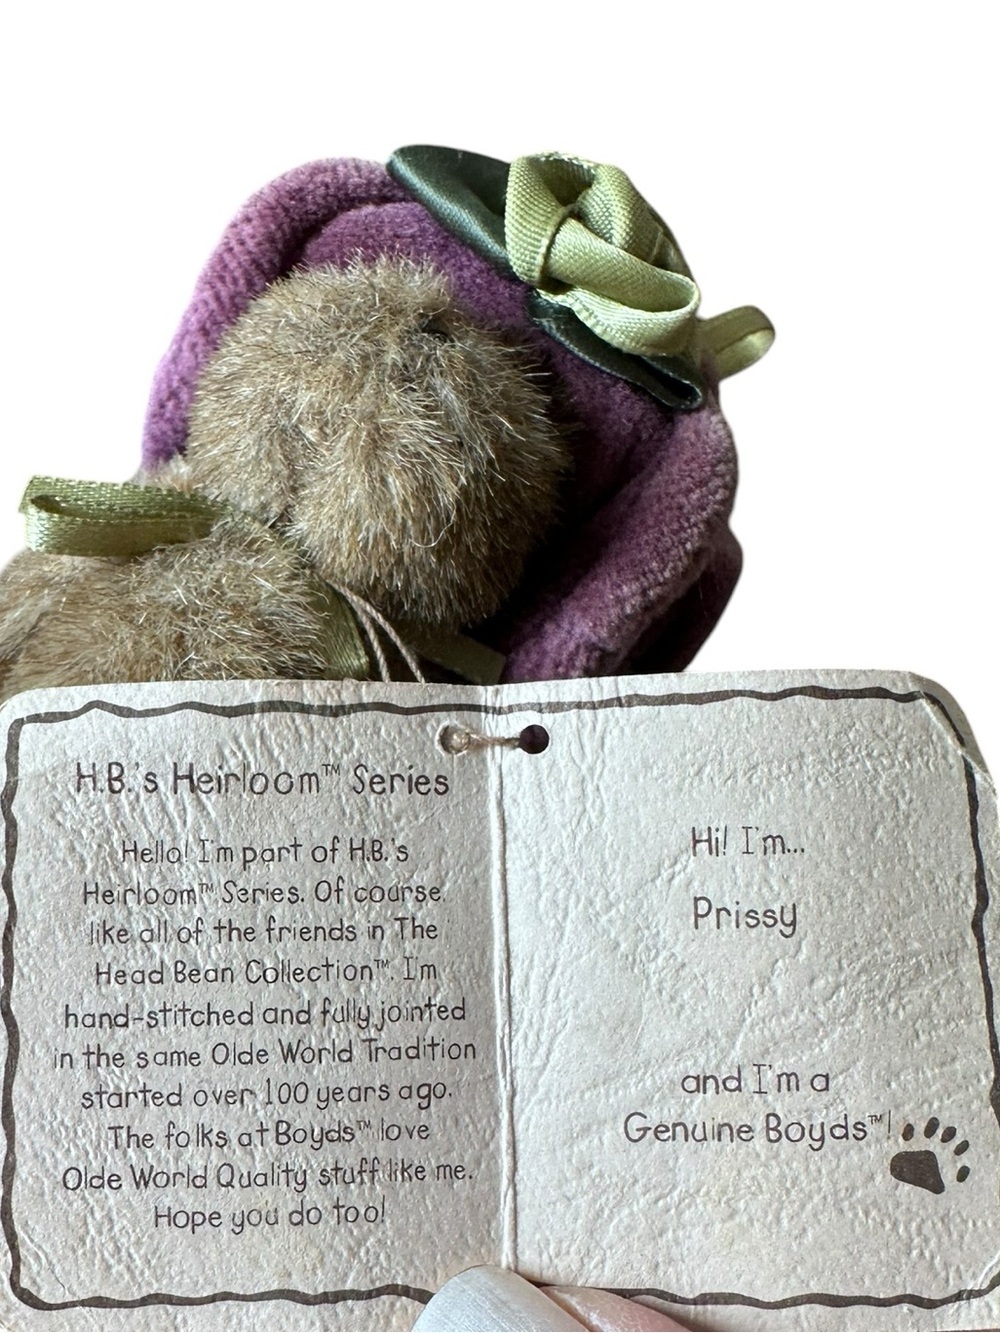 H.B.'s Heirloom™ Series
Hello! I'm part of H.B.'s
Heirloom™ Series. Of course,
like all of the friends in The
Head Bean Collection™, I'm
hand-stitched and fully jointed
in the same Olde World Tradition
started over 100 years ago.
The folks at Boyds™ love
Olde World Quality stuff like me.
Hope you do too!
Hi! I'm...
Prissy
and I'm a
Genuine Boyds™!